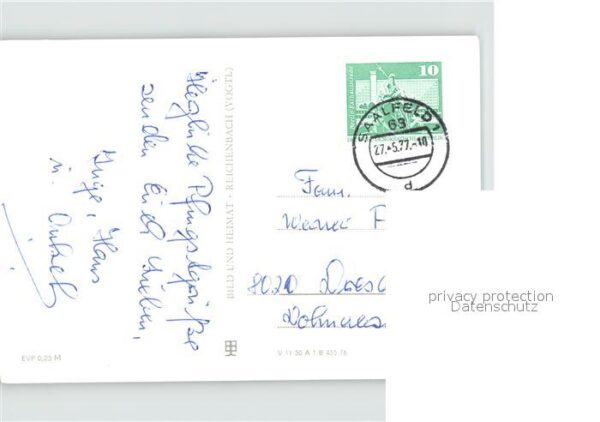 Herzliche Pfingstgrüße
senden Euch Lieben,
Inge, Hans
u.
BILD UND HEIMAT · REICHENBACH (VOGTL)
10
SAALFELD 1
69
27.-5.77.-10
d
Fam.
Werner F
8020
EVP 0,20 M
V 11 50 A 1/B 455/76
privacy protection
Datenschutz